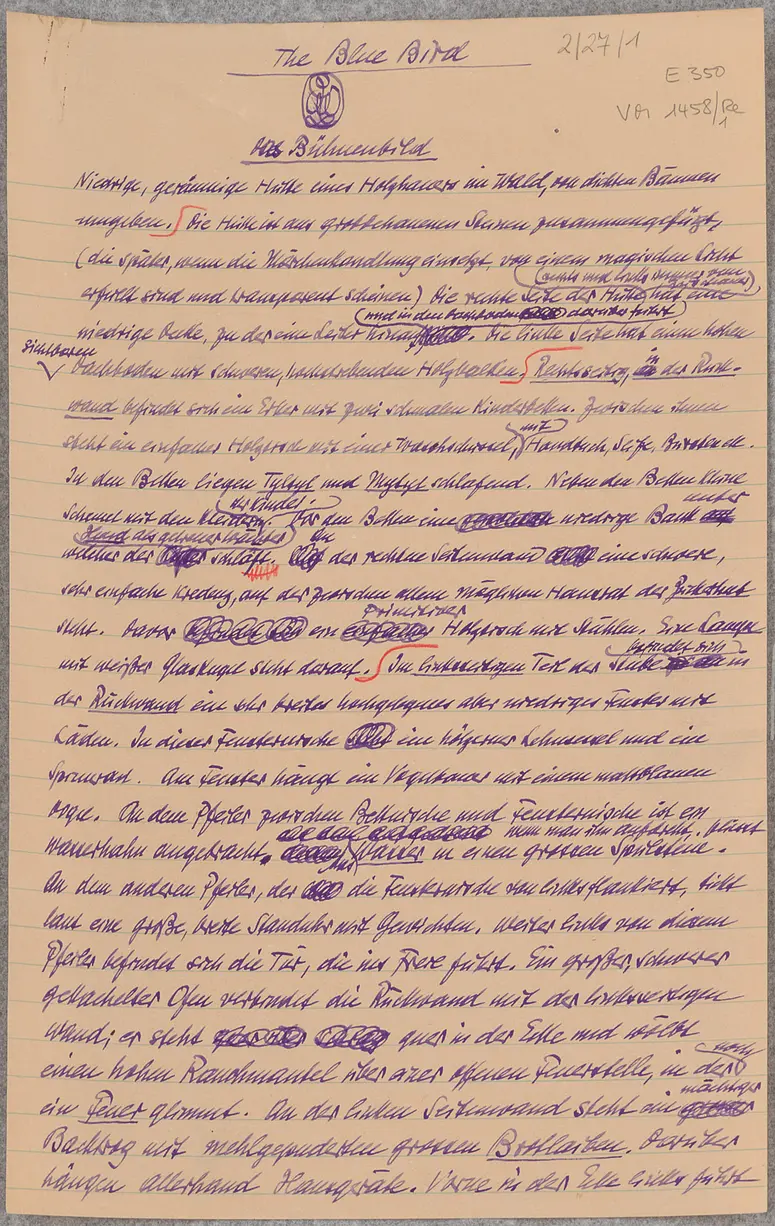 The Blue Bird
2/27/1
E 350
Vor 1458/Re
1
Bühnenbild
Niedrige, geräumige Hütte eines Holzhauers im Wald, von dichten Bäumen
umgeben. Die Hütte ist aus grobbehauenen zusammengefügt,
(die später, wenn die Märchenhandlung einsetzt, von einem magischen Licht
(rechts und links immer vom
Zuschauer)
erfüllt sind und transparent scheinen) Die rechte Seite der Hütte hat eine
(und in den darüber führt)
niedrige Decke, zu der eine Leiter. Die linke Seite hat einen hohen
sichtbaren
Dachboden mit schweren, Holzbalken. Rechtsseitig, in der Rück-
wand befindet sich ein Erker mit zwei schmalen Kinderbetten. Zwischen ihnen
steht ein einfacher Holztisch mit einer Waschschüssel, mit Handtuch, Seife, Bürsten etc.
In den Betten liegen Tyltyl und Mytyl schlafend. Neben den Betten kleine
der Kinder
unter
Schemel mit den Kleidern. Vor den Betten eine niedrige Bank
welcher der schläft. An der rechten Seitenwand eine schwere,
sehr einfache Kredenz, auf der zwischen allem möglichen Hausrat der
primitiver
steht. Davor ein Holztisch mit Stühlen. Eine Lampe
befindet sich
mit weißer Glaskugel steht darauf. Im linksseitigen Teil der Stube in
der Rückwand ein sehr breites aber niedriges Fenster mit
Läden. In dieser Fensternische ein hölzerner Lehnsessel und ein
Spinnrad. Am Fenster hängt ein Vogelbauer mit einem mattblauen
Vogel. An dem Pfeiler zwischen Bettnische und Fensternische ist ein
wenn man ihn aufdreht, fliesst
Wasserhahn angebracht. Wasser in einen grossen Spülstein.
An dem anderen Pfeiler, der die Fensternische von links flankiert, tickt
laut eine große, breite Standuhr mit Gewichten. Weiter links von diesem
Pfeiler befindet sich die Tür, die ins Freie führt. Ein großer, schwerer
gekachelter Ofen verbindet die Rückwand mit der linksseitigen
Wand; er steht quer in der Ecke und wölbt
einen hohen Rauchmantel über einer offenen Feuerstelle, in der noch
mächtiger
ein Feuer glimmt. An der linken Seitenwand steht ein
Backtrog mit mehlgepuderten grossen Brotlaiben. Darüber
hängen allerhand Hausgeräte. Vorne in der Ecke links führt